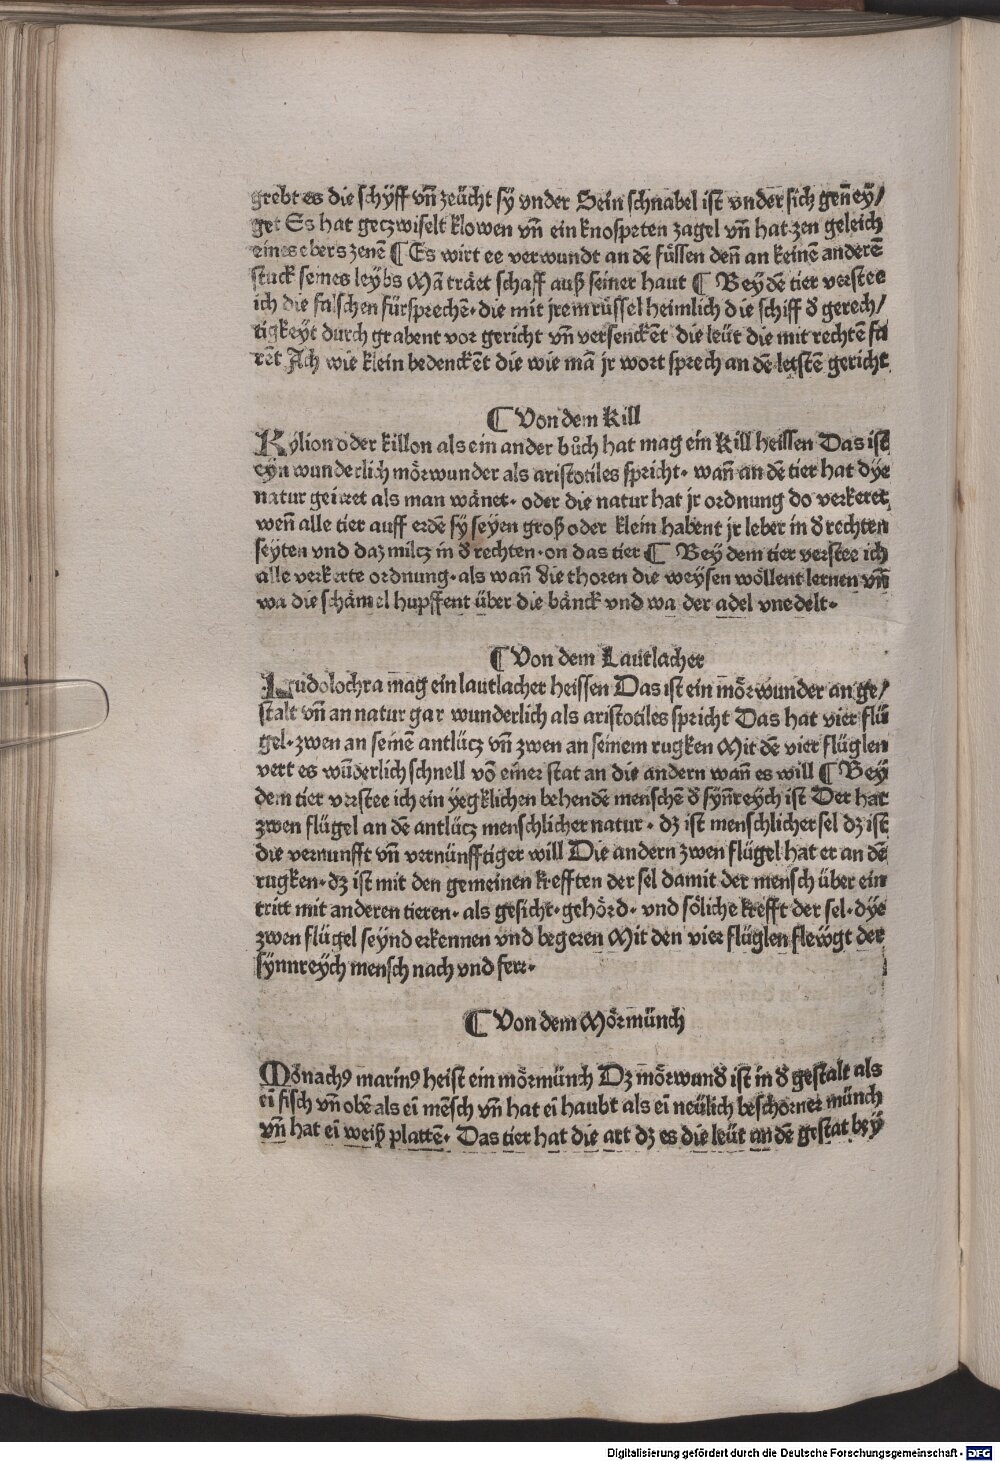 grebt es die schyff vñ zeücht sy vnder Sein schnabel ist vnder sich genney/
get Es hat geczwiselt klowen vñ ein knospeten zagel vñ hat zen geleich
eines ebers zenē ¶ Es wirt ee verwundt an dē fůssen denn an keinē anderē
stuck seines leybs Mā träet schaff auß seiner haut ¶ Bey dē tier verstee
ich die falschen fürsprechē· die mit jrem rüssel heimlich die schiff d̕ gerech/
tigkeyt durch grabent vor gericht vñ versenckēt die leüt die mit rechtē fa
rēt Ach wie klein bedenckēt die wie mā jr wort sprech an dē letstē gericht
¶ Von dem Kill
Kylion oder killon als ein ander bůch hat mag ein Kill heissen Das ist
eyn wunderlich mörwunder als aristotiles spricht· wañ an dē tier hat dye
natur geirret als man wänet· oder die natur hat jr ordnung do verkeret
weñ alle tier auff erdē sy seyen groß oder klein habent jr leber in d̕ rechten
seyten vnd daz milcz in d̕ rechten· on das tier ¶ Bey dem tier verstee ich
alle verkerte ordnung· als wañ die thoren die weysen wöllent lernen vñ
wa die schämel hupffent über die bänck vnd wa der adel vnedelt·
¶ Von dem Lautlacher
Ludolochra mag ein lautlacher heissen Das ist ein mörwunder an ge/
stalt vñ an natur gar wunderlich als aristotiles spricht Das hat vier flü
gel· zwen an seinē antlücz vñ zwen an seinem rugken Mit dē vier flüglen
vert es wūderlich schnell vō einer stat an die andern wañ es will ¶ Bey
dem tier verstee ich ein yegklichen behendē menschē d̕ synnreych ist Der hat
zwen flügel an dē antlücz menschlicher natur· dz ist menschlicher sel dz ist
die vernunfft vñ vernünfftiger will Die andern zwen flügel hat er an dē
rugken· dz ist mit den gemeinen krefften der sel damit der mensch über ein
tritt mit anderen tieren· als gesicht· gehörd· vnd söliche krefft der sel· dye
zwen flügel seynd erkennen vnd begeren Mit den vier flüglen flewgt der
synnreych mensch nach vnd ferr·
¶ Von dem Mörmünch
Mōnachꝰ marinꝰ heist ein mörmünch Dz mörwund̕ ist in d̕ gestalt als
eī fisch vñ obē als eī mēsch vñ hat eī haubt als eī neülich beschorner münch
vñ hat eī weiß plattē· Das tier hat die art dz es die leüt an dē gestat bey
Digitalisierung gefördert durch die Deutsche Forschungsgemeinschaft - DFG